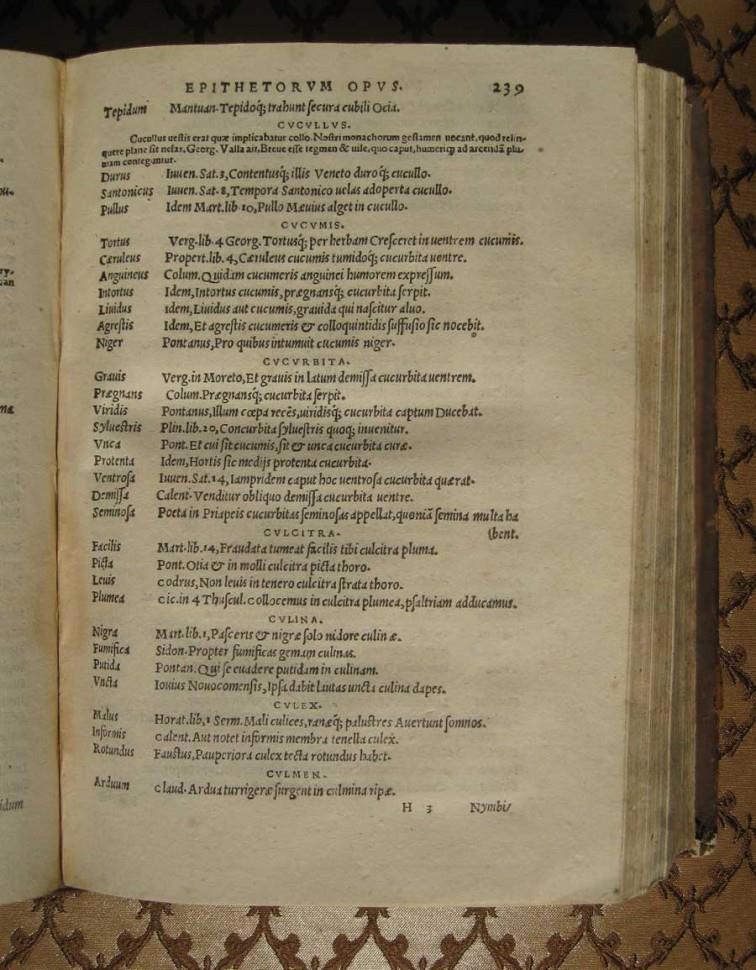 EPITHETORVM OPVS. 239
Tepidum Mantuan. Tepidoq́; trahunt secura cubili Ocia.
CVCVLLVS.
Cucullus uestis erat quæ implicabatur collo. Nostri monachorum gestamen uocant, quod relin-
quere plane sit nefas. Georg. Valla ait, Breue esse tegmen & uile, quo caput, humeriq; ad arcendā plu-
uiam conteguntur.
Durus Iuuen. Sat. 3, Contentusq́; illis Veneto duroq́; cucullo.
Santonicus Iuuen. Sat. 8, Tempora Santonico uelas adoperta cucullo.
Pullus Idem Mart. lib. 10, Pullo Mæuius alget in cucullo.
CVCVMIS.
Tortus Verg. lib. 4 Georg. Tortusq́; per herbam Cresceret in uentrem cucumis.
Cæruleus Propert. lib. 4, Cæruleus cucumis tumidoq́; cucurbita uentre.
Anguineus Colum. Quidam cucumeris anguinei humorem expressum.
Intortus Idem, Intortus cucumis, prægnansq́; cucurbita serpit.
Liuidus Idem, Liuidus aut cucumis, grauida qui nascitur aluo.
Agrestis Idem, Et agrestis cucumeris & colloquintidis suffusio sic nocebit.
Niger Pontanus, Pro quibus intumuit cucumis niger.
CVCVRBITA.
Grauis Verg. in Moreto, Et grauis in latum demissa cucurbita uentrem.
Prægnans Colum. Prægnansq́; cucurbita serpit.
Viridis Pontanus, Illum cœpa recēs, uiridisq́; cucurbita captum Ducebat.
Syluestris Plin. lib. 20, Concurbita syluestris quoq; inuenitur.
Vnca Pont. Et cui sit cucumis, sit & unca cucurbita curæ.
Protenta Idem, Hortis sic medijs protenta cucurbita.
Ventrosa Iuuen. Sat. 14, Iampridem caput hoc uentrosa cucurbita quærat.
Demissa Calent. Venditur obliquo demissa cucurbita uentre.
Seminosa Poeta in Priapeis cucurbitas seminosas appellat, quoniā semina multa ha
CVLCITRA. (bent.
Facilis Mart. lib. 14, Fraudata tumeat facilis tibi culcitra pluma.
Picta Pont. Otia & in molli culcitra picta thoro.
Leuis Codrus, Non leuis in tenero culcitra strata thoro.
Plumea Cic. in 4 Thuscul. Collocemus in culcitra plumea, psaltriam adducamus.
CVLINA.
Nigra Mart. lib. 1, Pasceris & nigræ solo nidore culinæ.
Fumifica Sidon. Propter fumificas gemam culinas.
Putida Pontan. Qui se euadere putidam in culinam.
Vncta Iouius Nouocomensis, Ipsa dabit lautas uncta culina dapes.
CVLEX.
Malus Horat. lib. 1 Serm. Mali culices, ranæq́; palustres Auertunt somnos.
Informis Calent. Aut notet informis membra tenella culex.
Rotundus Faustus, Pauperiora culex tecta rotundus habet.
CVLMEN.
Arduum Claud. Ardua turrigeræ surgent in culmina ripæ.
H 3 Nymbis
idum